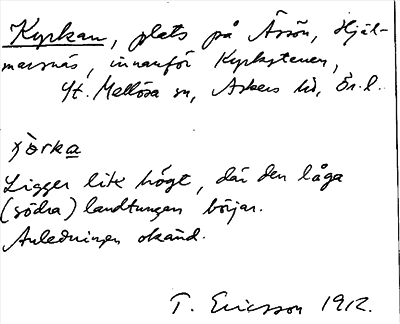 Kyrkan, plats på Åsön, Hjäl-
marsnäs, innanför Kyrkstenen,
St. Mellösa sn, Askers hd, Ör. l.
çòrka
Ligger lite högt, där den låga
(södra) landtungen börjar.
Anledningen okänd.
T. Ericsson 1912.